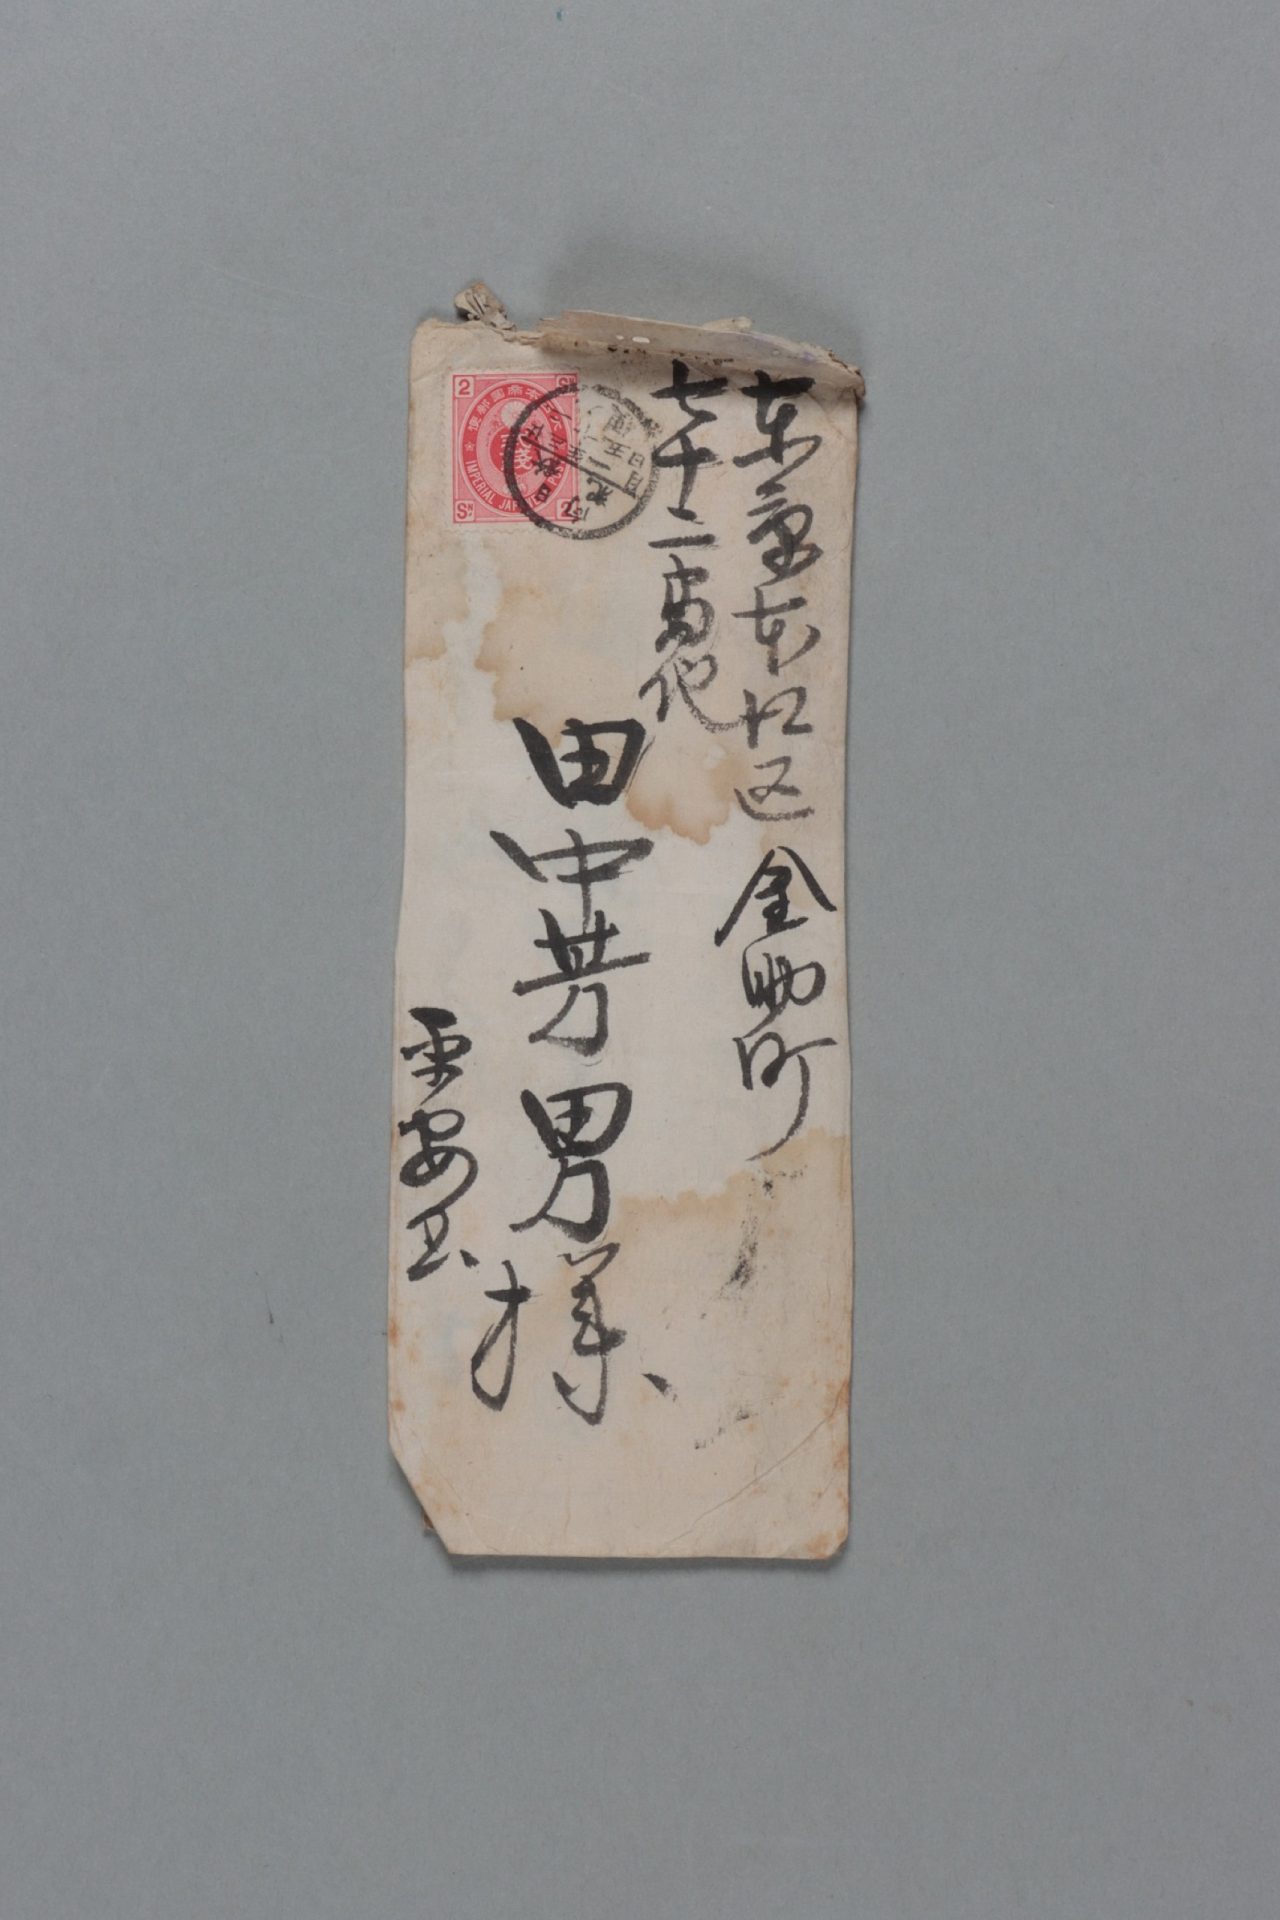 東京本郷区金助町
七十二番地
田中芳男様
平安
大日本帝国郵便
2 SN
IMPERIAL JAPANESE POST
SN 2